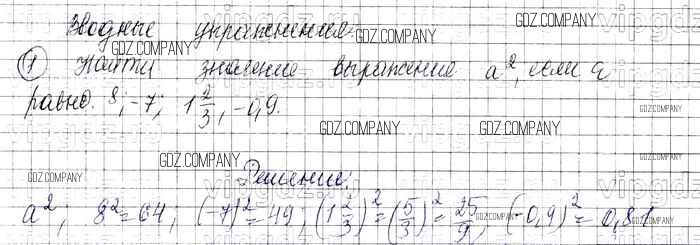 Вводные упражнения.
① Найти значение выражения a², если a
равно: 8; -7; 1 2/3; -0,9.
Решение:
a²; 8²=64; (-7)²=49; (1 2/3)²=(5/3)²=25/9; (-0,9)²=0,81
GDZ.COMPANY
GDZ.COMPANY
GDZ.COMPANY
GDZ.COMPANY
GDZ.COMPANY
GDZ.COMPANY
GDZ.COMPANY
GDZ.COMPANY
GDZ.COMPANY
GDZ.COMPANY